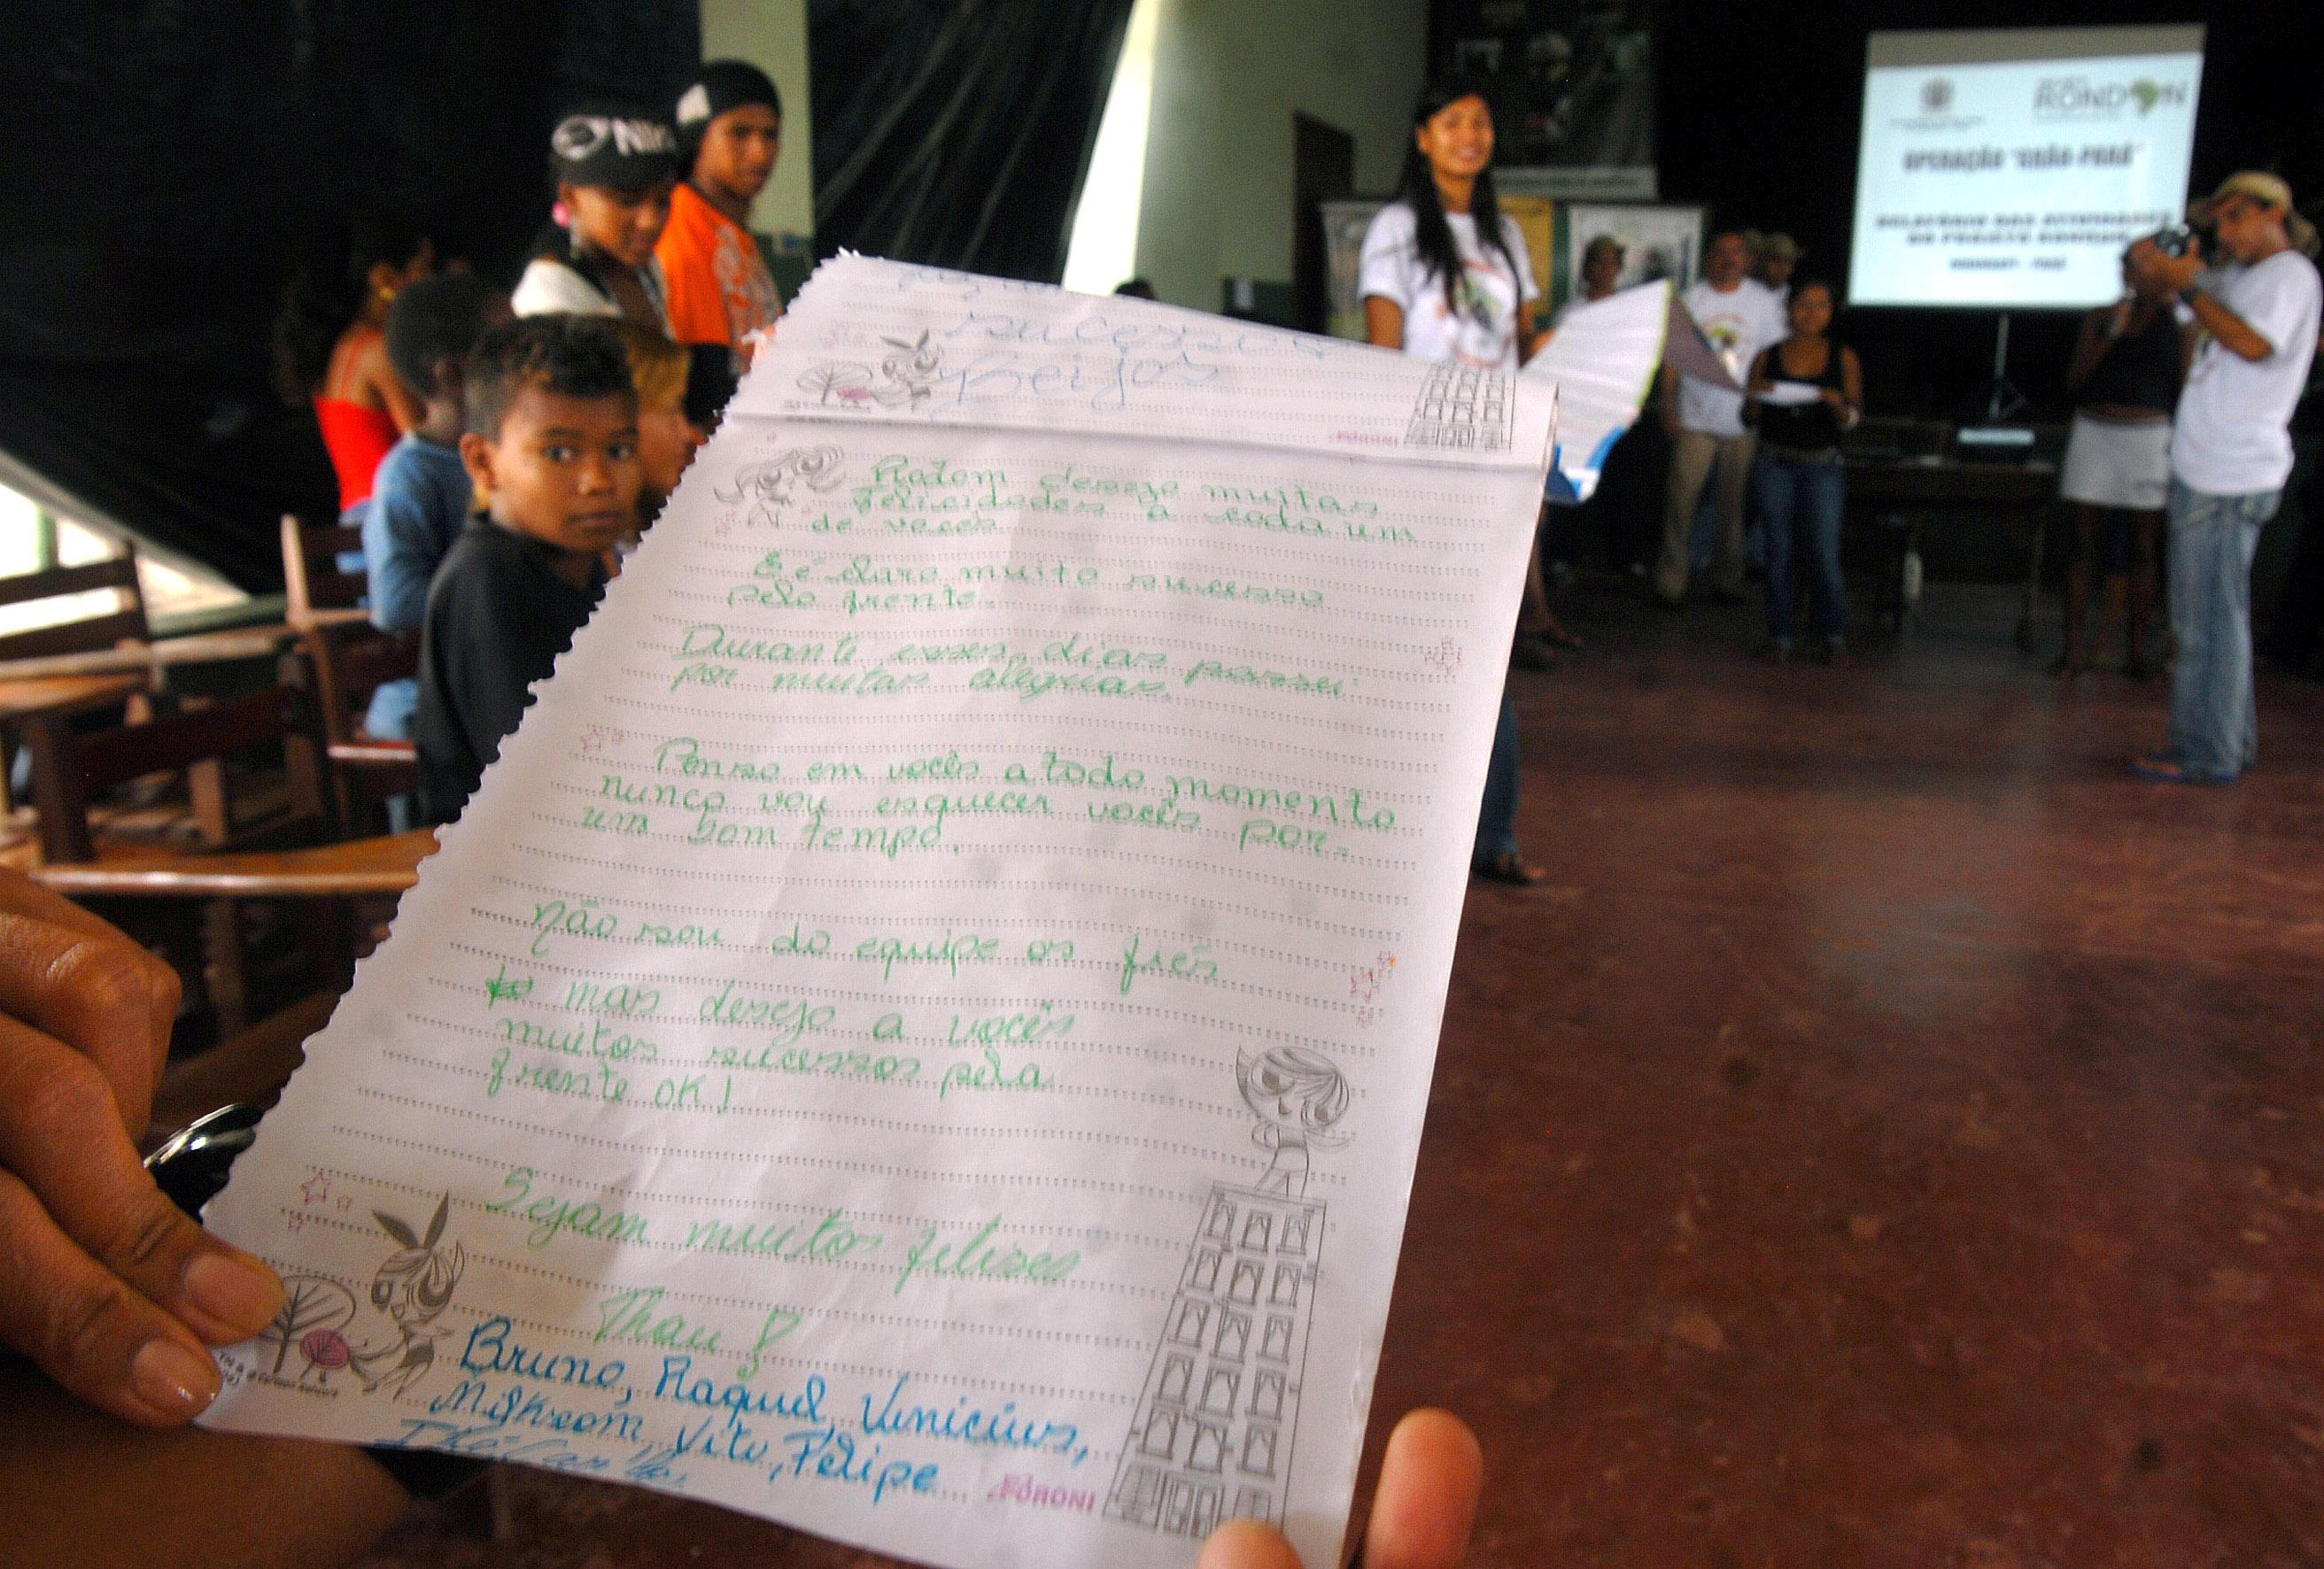 NIKE
RONDON
OPERAÇÃO "GRÃO-PARÁ"
RELATÓRIO DAS ATIVIDADES
DO PROJETO RONDON
sucessos
beijos
FORONI
desejo muitas
felicidades a cada um
de vocês
E é claro muito sucesso
pela frente.
Durante esses dias passei
por muitas alegrias.
Penso em vocês a todo momento
nunca vou esquecer vocês por
um bom tempo.
não sou do equipe os
mas desejo a vocês
muitos sucessos pela
frente OK!
Sejam muitos felizes
Thau
Bruno, Raquel, Vinicius,
Vitu, Felipe
FORONI